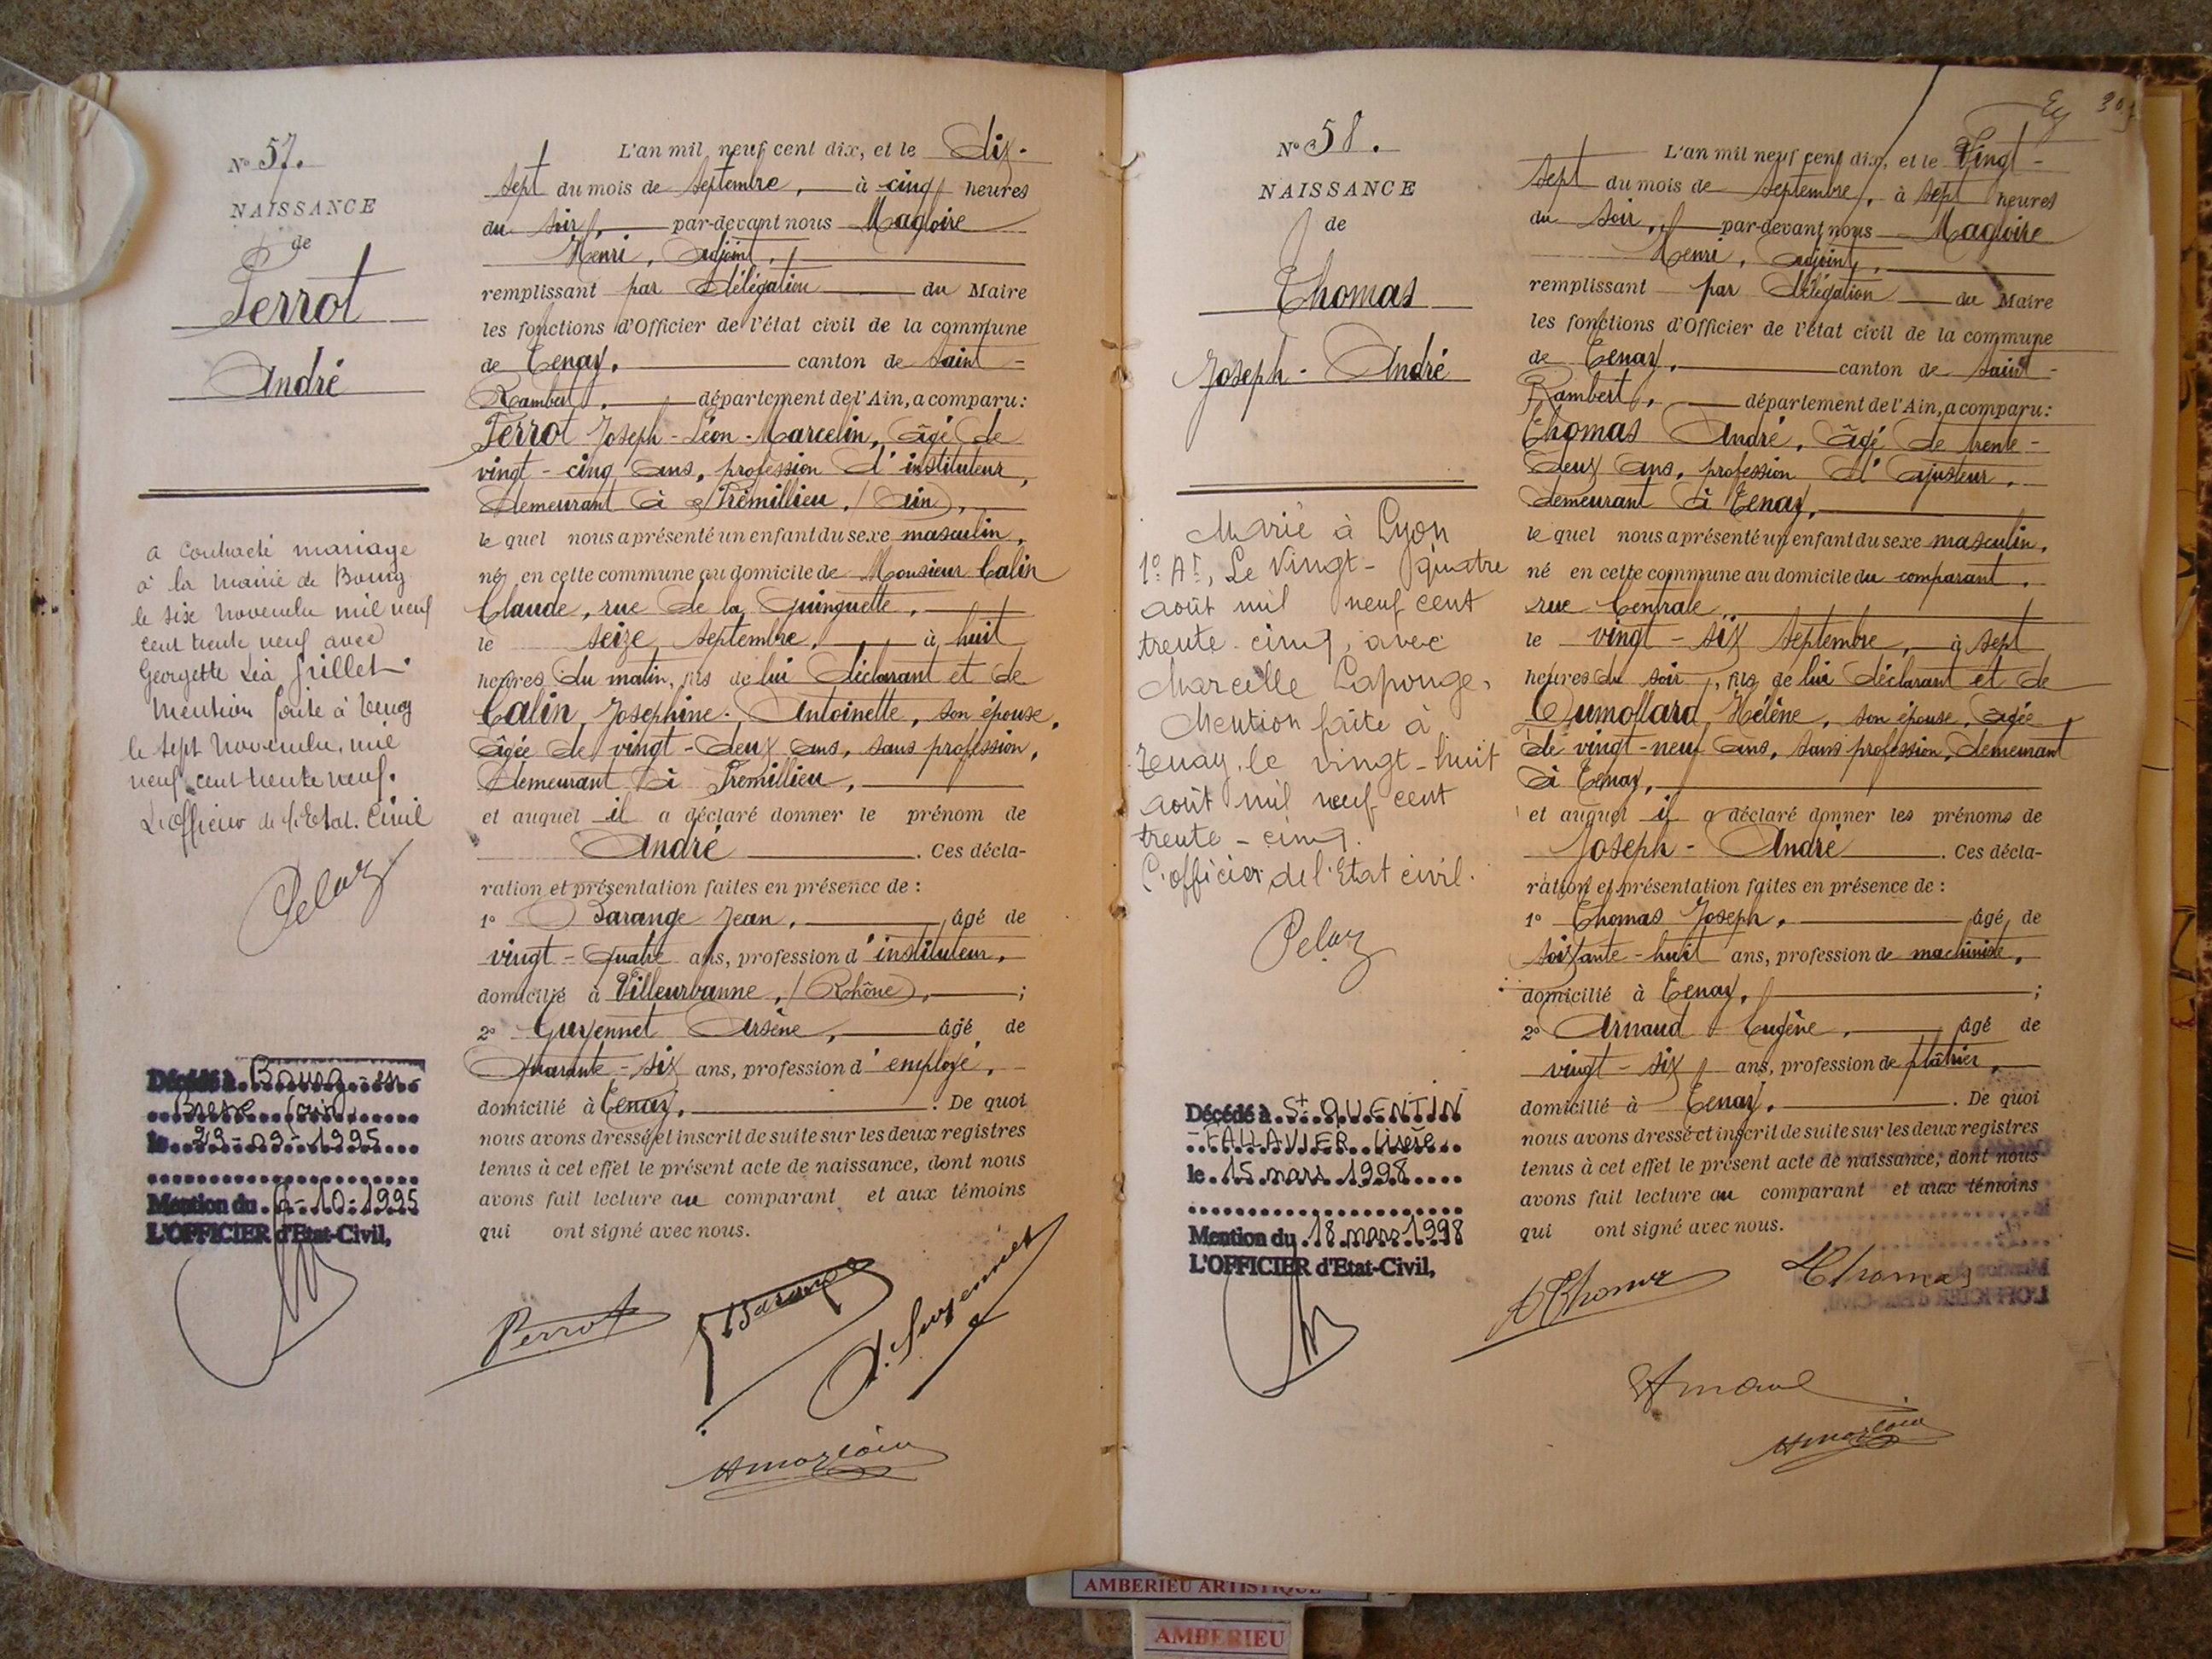 N° 57.
NAISSANCE
de
Perrot
André
a contracté mariage
à la mairie de Bourg
le six novembre mil neuf
cent trente neuf avec
Georgette Léa Grillet.
Mention faite à Tenay
le sept novembre, mil
neuf cent trente neuf.
L'officier de l'Etat. Civil
Pelaz
Décédé à Bourg-en-
Bresse (Ain)
le 29-09-1995
Mention du 6-10-1995
L'OFFICIER d'Etat-Civil,
L'an mil neuf cent dix, et le Dix-
sept du mois de Septembre, à cinq heures
du soir, par-devant nous Magloire
Henri, Adjoint,
remplissant par Délégation du Maire
les fonctions d'Officier de l'état civil de la commune
de Tenay, canton de Saint-
Rambert, département de l'Ain, a comparu:
Perrot Joseph-Léon-Marcelin, âgé de
vingt-cinq ans, profession d'instituteur,
demeurant à Prémillieu, (Ain),
le quel nous a présenté un enfant du sexe masculin,
né en cette commune au domicile de Monsieur Calin
Claude, rue de la Guinguette,
le seize septembre, à huit
heures du matin, fils de lui déclarant et de
Calin Joséphine-Antoinette, son épouse,
âgée de vingt-deux ans, sans profession,
demeurant à Prémillieu,
et auquel il a déclaré donner le prénom de
André. Ces décla-
ration et présentation faites en présence de :
1° Barange Jean, âgé de
vingt-quatre ans, profession d'instituteur,
domicilié à Villeurbanne, (Rhône), ;
2° Guyennet Arsène, âgé de
Quarante-six ans, profession d'employé,
domicilié à Tenay, . De quoi
nous avons dressé et inscrit de suite sur les deux registres
tenus à cet effet le présent acte de naissance, dont nous
avons fait lecture au comparant et aux témoins
qui ont signé avec nous.
Perrot Barange A. Guyennet
HMagloire
N° 58.
NAISSANCE
de
Thomas
Joseph-André
Marié à Lyon
1er Art, Le Vingt-quatre
août mil neuf cent
trente-cinq, avec
Marcelle Laponge.
Mention faite à
Tenay, le vingt-huit
août mil neuf cent
trente-cinq.
L'officier de l'Etat civil.
Pelaz
Décédé à St QUENTIN
-FALLAVIER (Isère)
le 15 mars 1998
Mention du 18 mars 1998
L'OFFICIER d'Etat-Civil,
L'an mil neuf cent dix, et le Vingt-
sept du mois de Septembre, à sept heures
du soir, par-devant nous Magloire
Henri, adjoint,
remplissant par Délégation du Maire
les fonctions d'Officier de l'état civil de la commune
de Tenay, canton de Saint-
Rambert, département de l'Ain, a comparu:
Thomas André, âgé de trente-
deux ans, profession d'ajusteur,
demeurant à Tenay,
le quel nous a présenté un enfant du sexe masculin,
né en cette commune au domicile du comparant,
rue Centrale,
le vingt-six septembre, à sept
heures du soir, fils de lui déclarant et de
Dumollard Hélène, son épouse, âgée
de vingt-neuf ans, sans profession, demeurant
à Tenay,
et auquel il a déclaré donner les prénoms de
Joseph-André. Ces décla-
ration et présentation faites en présence de :
1° Thomas Joseph, âgé de
soixante-huit ans, profession de machiniste,
domicilié à Tenay, ;
2° Arnaud Eugène, âgé de
vingt-six ans, profession de plâtrier,
domicilié à Tenay, . De quoi
nous avons dressé et inscrit de suite sur les deux registres
tenus à cet effet le présent acte de naissance, dont nous
avons fait lecture au comparant et aux témoins
qui ont signé avec nous.
AThomas Thomas
Arnaud
HMagloire
AMBERIEU ARTISTIQUE
AMBERIEU